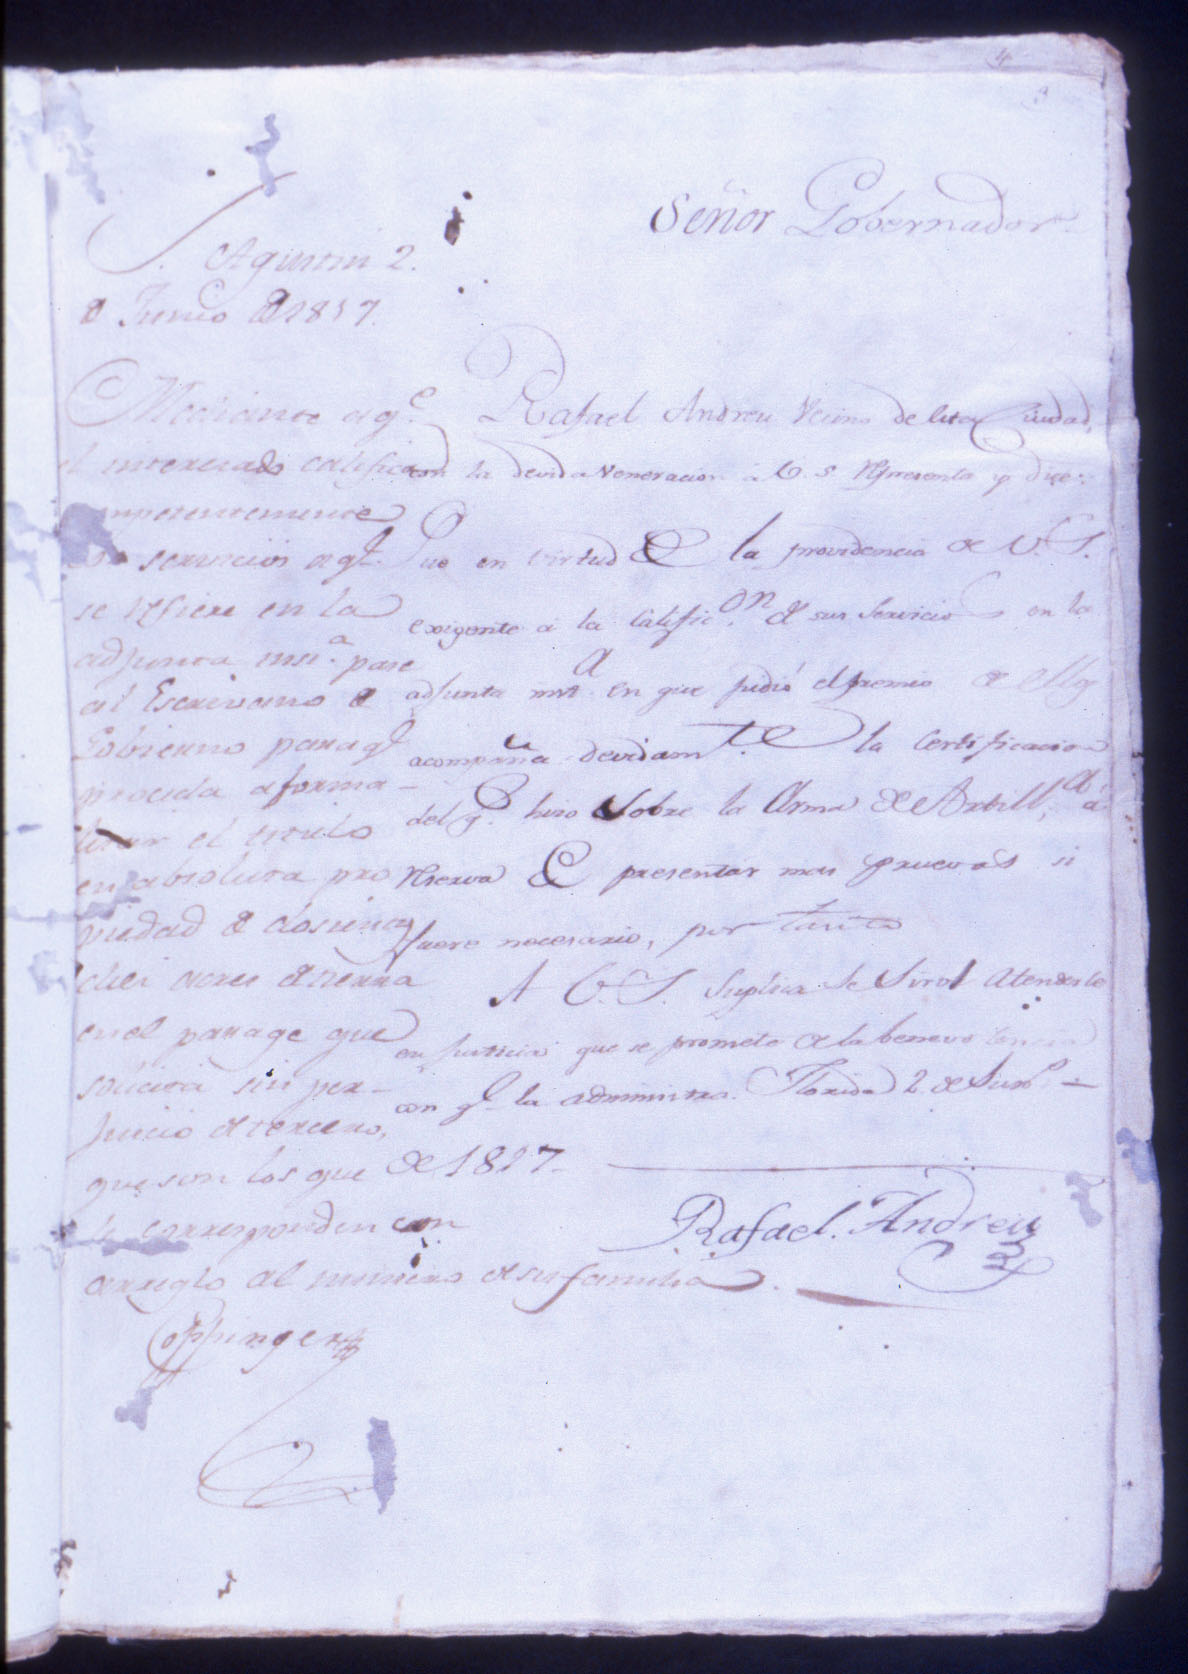 4
3
Señor Gobernador
S. Agustin 2.
de Junio de 1817.
Mediante a q.e
el interesado calificó
competentemente
los servicios a q.e
se refiere en la
adjunta inst.a pase
al Escrivano de
Gobierno para q.e
proceda a forma-
lizar el titulo
en absoluta pro
piedad de doscientos
diez acres de tierra
en el parage que
solicita sin per-
juicio de tercero,
que son los que
le corresponden con
arreglo al numero de su familia.
Coppinger
Rafael Andreu Vecino de esta Ciudad,
con la devida veneracion à V. S. representa y dice:
Que en virtud de la providencia de V. S.
exigente a la Calific.on de sus Servicios en la
adjunta inst.a en que pidió el premio de ellos
acompaña devidam.te la Certificacion
del q.e hizo sobre la Arma de Artill.a à
reserva de presentar mas pruevas si
fuere necesario, por tanto
A V. S. Suplica se Sirva atenderlo
en Justicia que se promete de la benevolencia
con q.e la administra. Florida 2 de Jun.o
de 1817.
Rafael Andreu